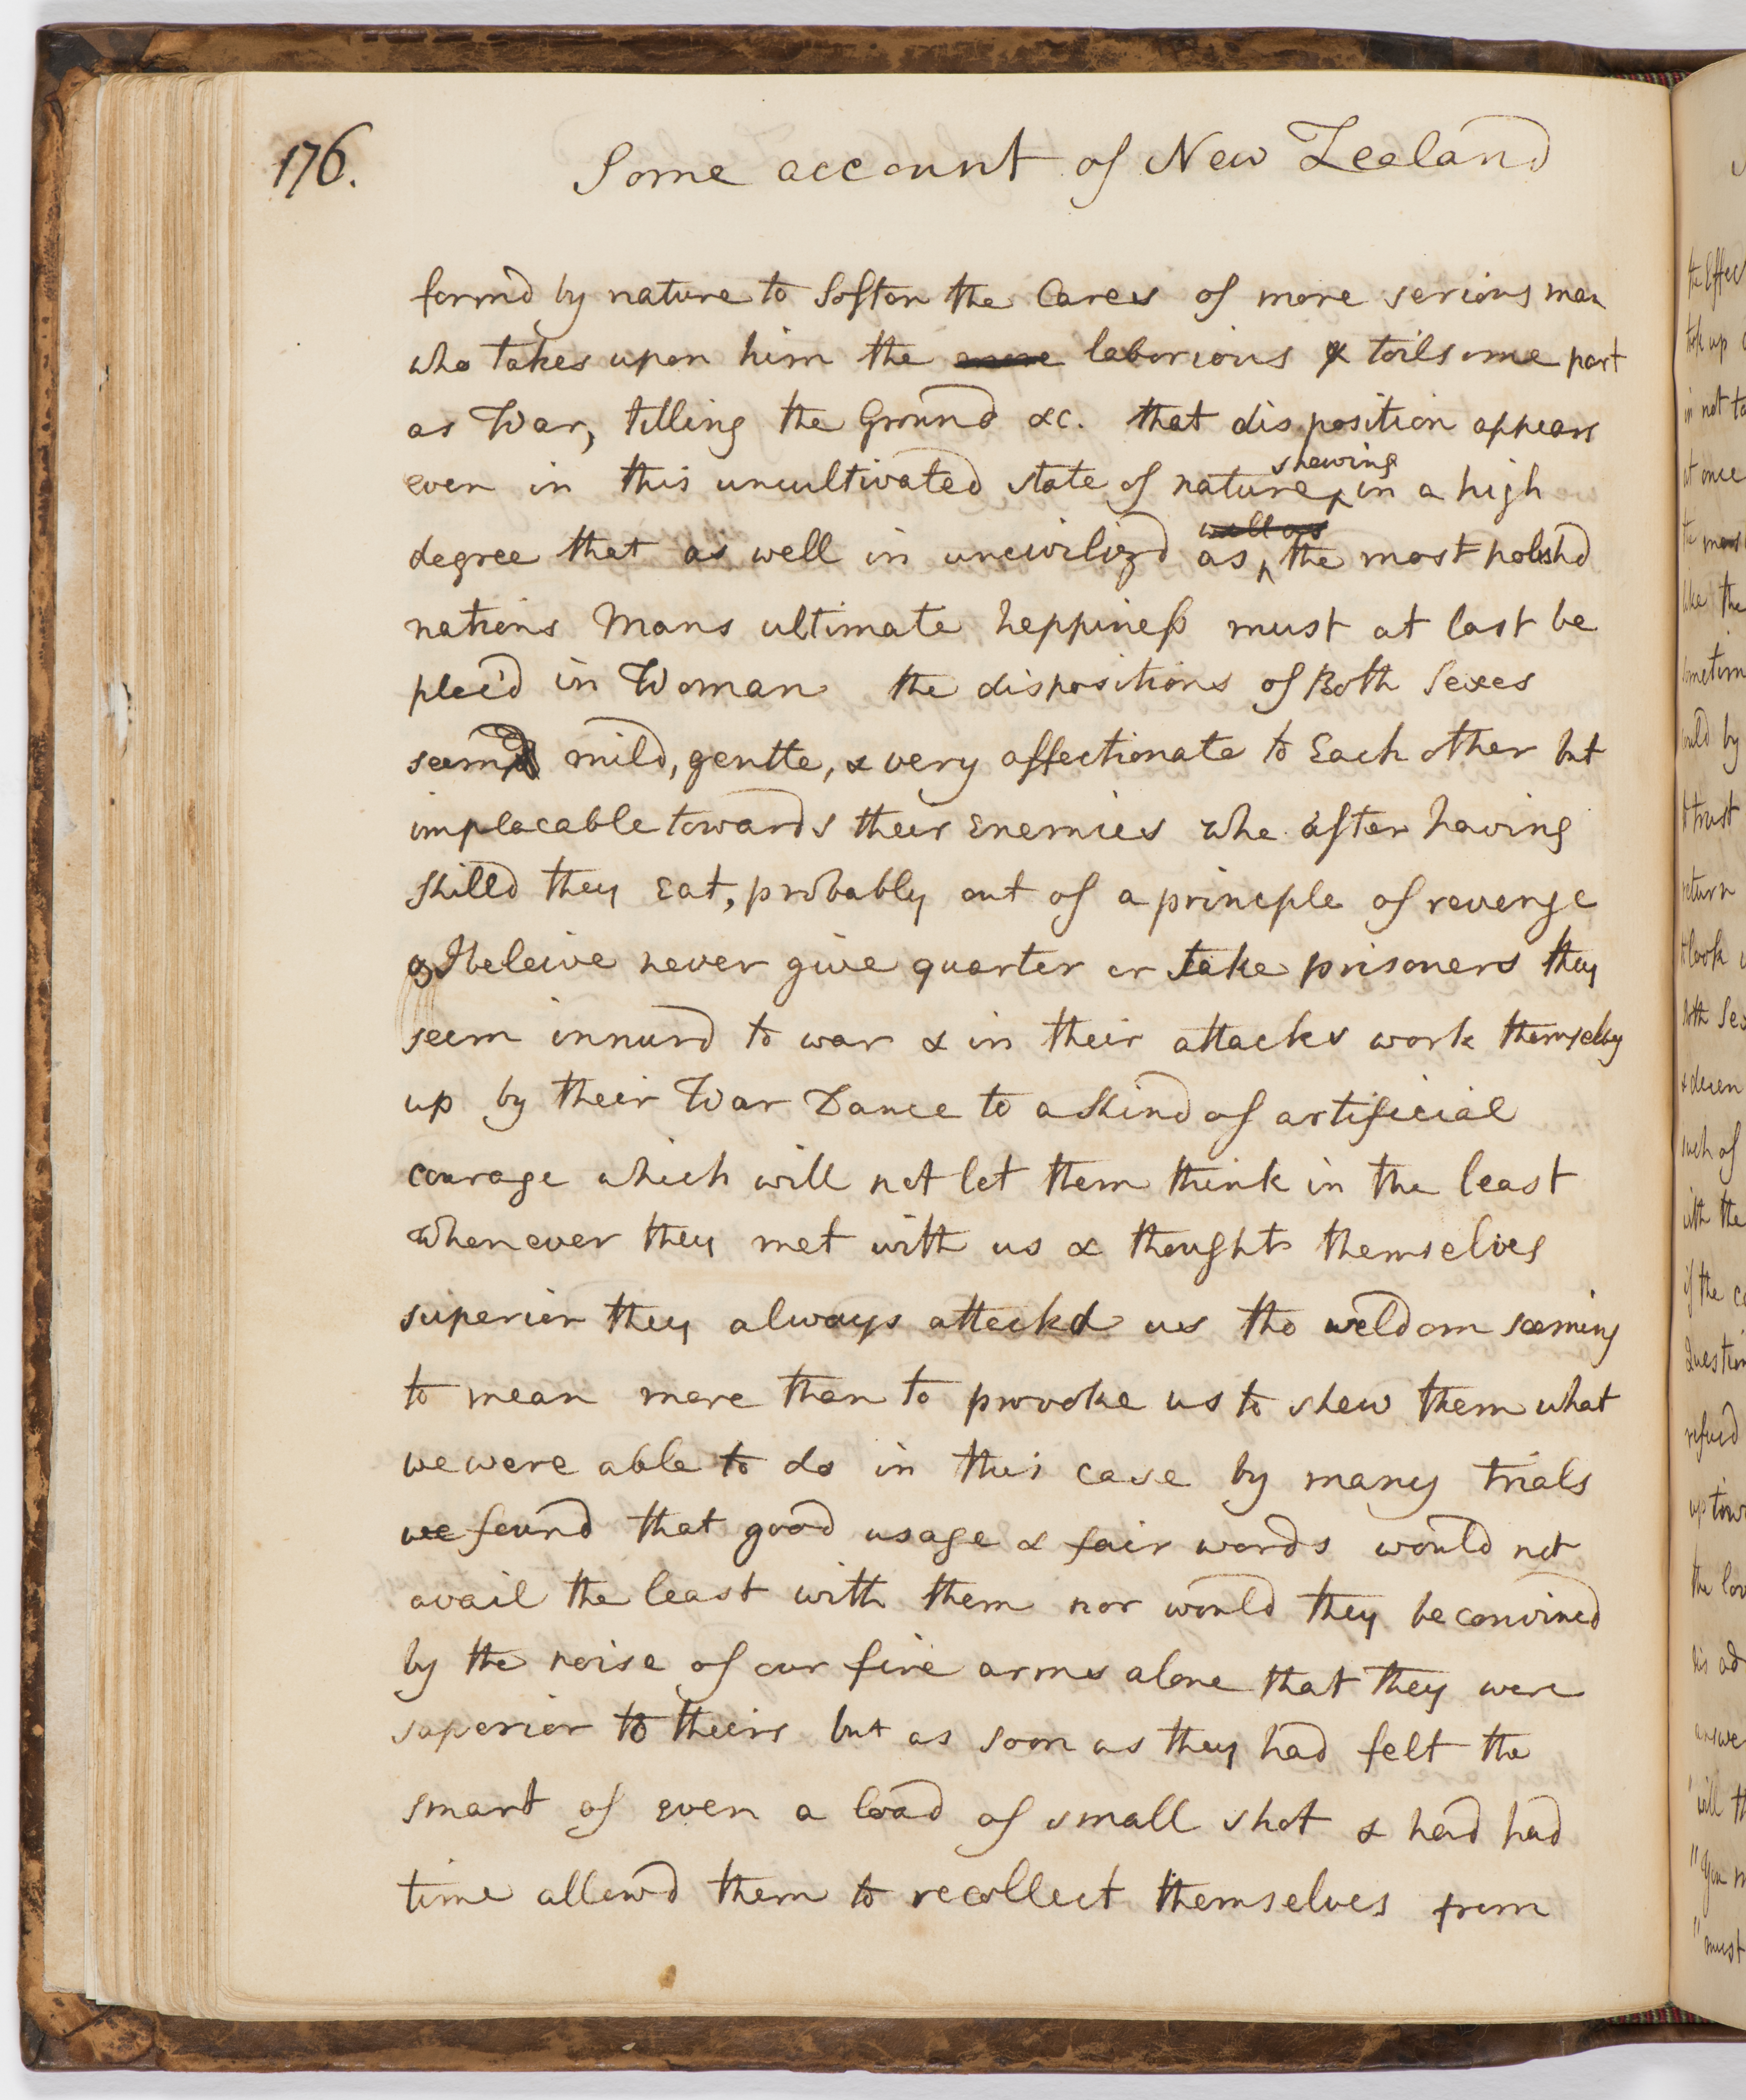 176.
Some account of New Zealand
formd by nature to Soften the Cares of more serious man
who takes upon him the more laborious & toilsome part
as War, tilling the Ground &c. that disposition appears
even in this uncultivated state of nature shewing in a high
degree that as well in uncivilizd as well as the most polishd
nations Mans ultimate happiness must at last be
plac'd in Woman the dispositions of Both Sexes
seemd mild, gentle, & very affectionate to Each other but
implacable towards their Enemies who after having
killd they Eat, probably out of a principle of revenge
& I beleive never give quarter or take prisoners they
seem innurd to war & in their attacks work themselvs
up by their War Dance to a kind of artificial
courage which will not let them think in the least
whenever they met with us & thought themselves
superior they always attackd us tho seldom seeming
to mean more than to provoke us to shew them what
we were able to do in this case by many trials
we found that good usage & fair words would not
avail the least with them nor would they be convined
by the noise of our fire arms alone that they were
superior to theirs but as soon as they had felt the
smart of even a load of small shot & had had
time allowd them to recollect themselves from
the Effec
took up
in not ta
at once
the most
like the
sometim
could by
to trust
return
to look
both Sex
such of
with the
if the ca
Question
refusd
up tow
the lov
his ad
answe
"will th
"you m
"must